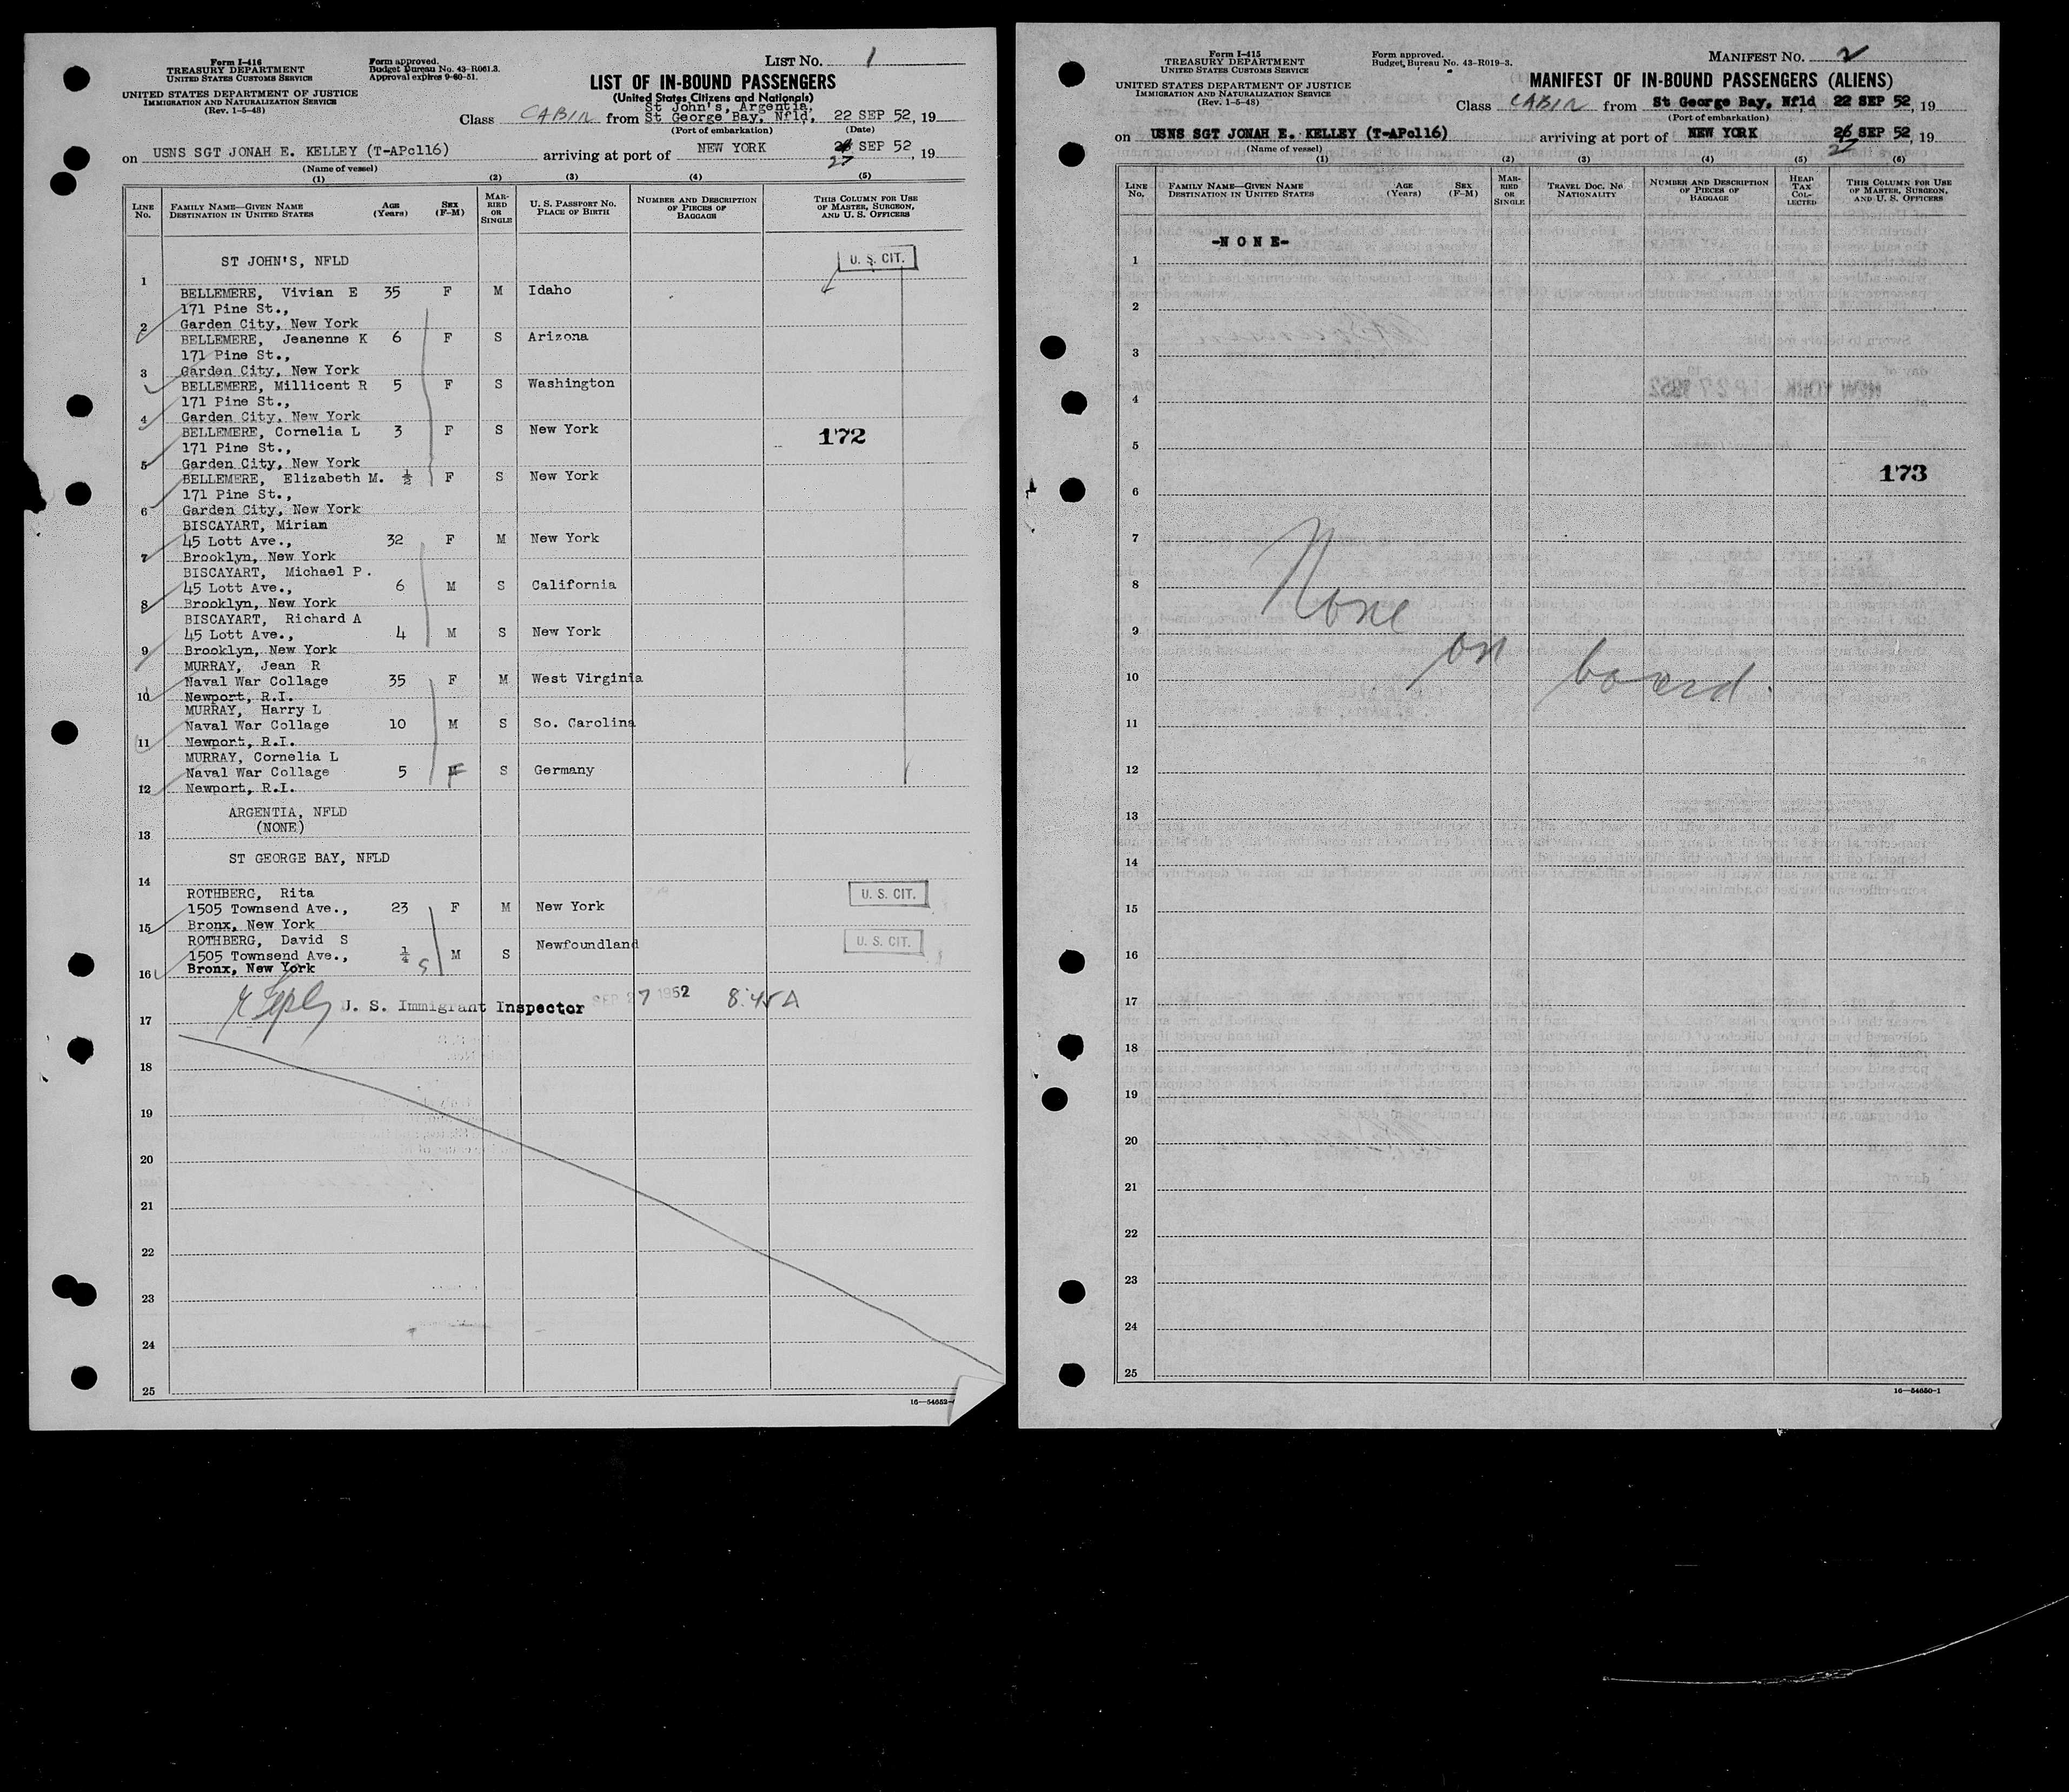 Form I-416
TREASURY DEPARTMENT
UNITED STATES CUSTOMS SERVICE
UNITED STATES DEPARTMENT OF JUSTICE
IMMIGRATION AND NATURALIZATION SERVICE
(Rev. 1-5-48)
Form approved.
Budget Bureau No. 43-R061.3.
Approval expires 9-30-51.
LIST NO. 1
LIST OF IN-BOUND PASSENGERS
(United States Citizens and Nationals)
St John's, Argentia,
Class CABIN from St George Bay, Nfld, 22 SEP 52, 19
(Port of embarkation) (Date)
on USNS SGT JONAH E. KELLEY (T-APc116) arriving at port of NEW YORK SEP 52, 19
27
(Name of vessel)
(1) (2) (3) (4) (5)
LINE No. FAMILY NAME—GIVEN NAME DESTINATION IN UNITED STATES AGE (Years) SEX (F-M) MARRIED OR SINGLE U. S. PASSPORT NO. PLACE OF BIRTH NUMBER AND DESCRIPTION OF PIECES OF BAGGAGE THIS COLUMN FOR USE OF MASTER, SURGEON, AND U. S. OFFICERS
ST JOHN'S, NFLD U. S. CIT.
1
BELLEMERE, Vivian E 35 F M Idaho
171 Pine St.,
2 Garden City, New York
BELLEMERE, Jeanenne K 6 F S Arizona
171 Pine St.,
3 Garden City, New York
BELLEMERE, Millicent R 5 F S Washington
171 Pine St.,
4 Garden City, New York
BELLEMERE, Cornelia L 3 F S New York 172
171 Pine St.,
5 Garden City, New York
BELLEMERE, Elizabeth M. ½ F S New York
171 Pine St.,
6 Garden City, New York
BISCAYART, Miriam
45 Lott Ave., 32 F M New York
7 Brooklyn, New York
BISCAYART, Michael P.
45 Lott Ave., 6 M S California
8 Brooklyn, New York
BISCAYART, Richard A
45 Lott Ave., 4 M S New York
9 Brooklyn, New York
MURRAY, Jean R
Naval War Collage 35 F M West Virginia
10 Newport, R.I.
MURRAY, Harry L
Naval War Collage 10 M S So. Carolina
11 Newport, R.I.
MURRAY, Cornelia L
Naval War Collage 5 F S Germany
12 Newport, R.I.
ARGENTIA, NFLD
(NONE)
13
ST GEORGE BAY, NFLD
14
ROTHBERG, Rita U. S. CIT.
1505 Townsend Ave., 23 F M New York
15 Bronx, New York
ROTHBERG, David S U. S. CIT.
1505 Townsend Ave., ¼ M S Newfoundland
16 Bronx, New York
U. S. Immigrant Inspector SEP 27 1952 8:45A
17
18
19
20
21
22
23
24
25
16—54652-
Form I-415
TREASURY DEPARTMENT
UNITED STATES CUSTOMS SERVICE
UNITED STATES DEPARTMENT OF JUSTICE
IMMIGRATION AND NATURALIZATION SERVICE
(Rev. 1-5-48)
Form approved.
Budget Bureau No. 43-R019-3.
MANIFEST NO. 2
MANIFEST OF IN-BOUND PASSENGERS (ALIENS)
Class CABIN from St George Bay, Nfld 22 SEP 52, 19
(Port of embarkation)
on USNS SGT JONAH E. KELLEY (T-APc116) arriving at port of NEW YORK 26 SEP 52, 19
27
(Name of vessel)
(1) (2) (3) (4) (5) (6)
LINE No. FAMILY NAME—GIVEN NAME DESTINATION IN UNITED STATES AGE (Years) SEX (F-M) MARRIED OR SINGLE TRAVEL DOC. NO. NATIONALITY NUMBER AND DESCRIPTION OF PIECES OF BAGGAGE HEAD TAX COLLECTED THIS COLUMN FOR USE OF MASTER, SURGEON, AND U. S. OFFICERS
-N O N E-
1
2
3
4
5
173
6
7
8
None
9
on board.
10
11
12
13
14
15
16
17
18
19
20
21
22
23
24
25
16—54650-1